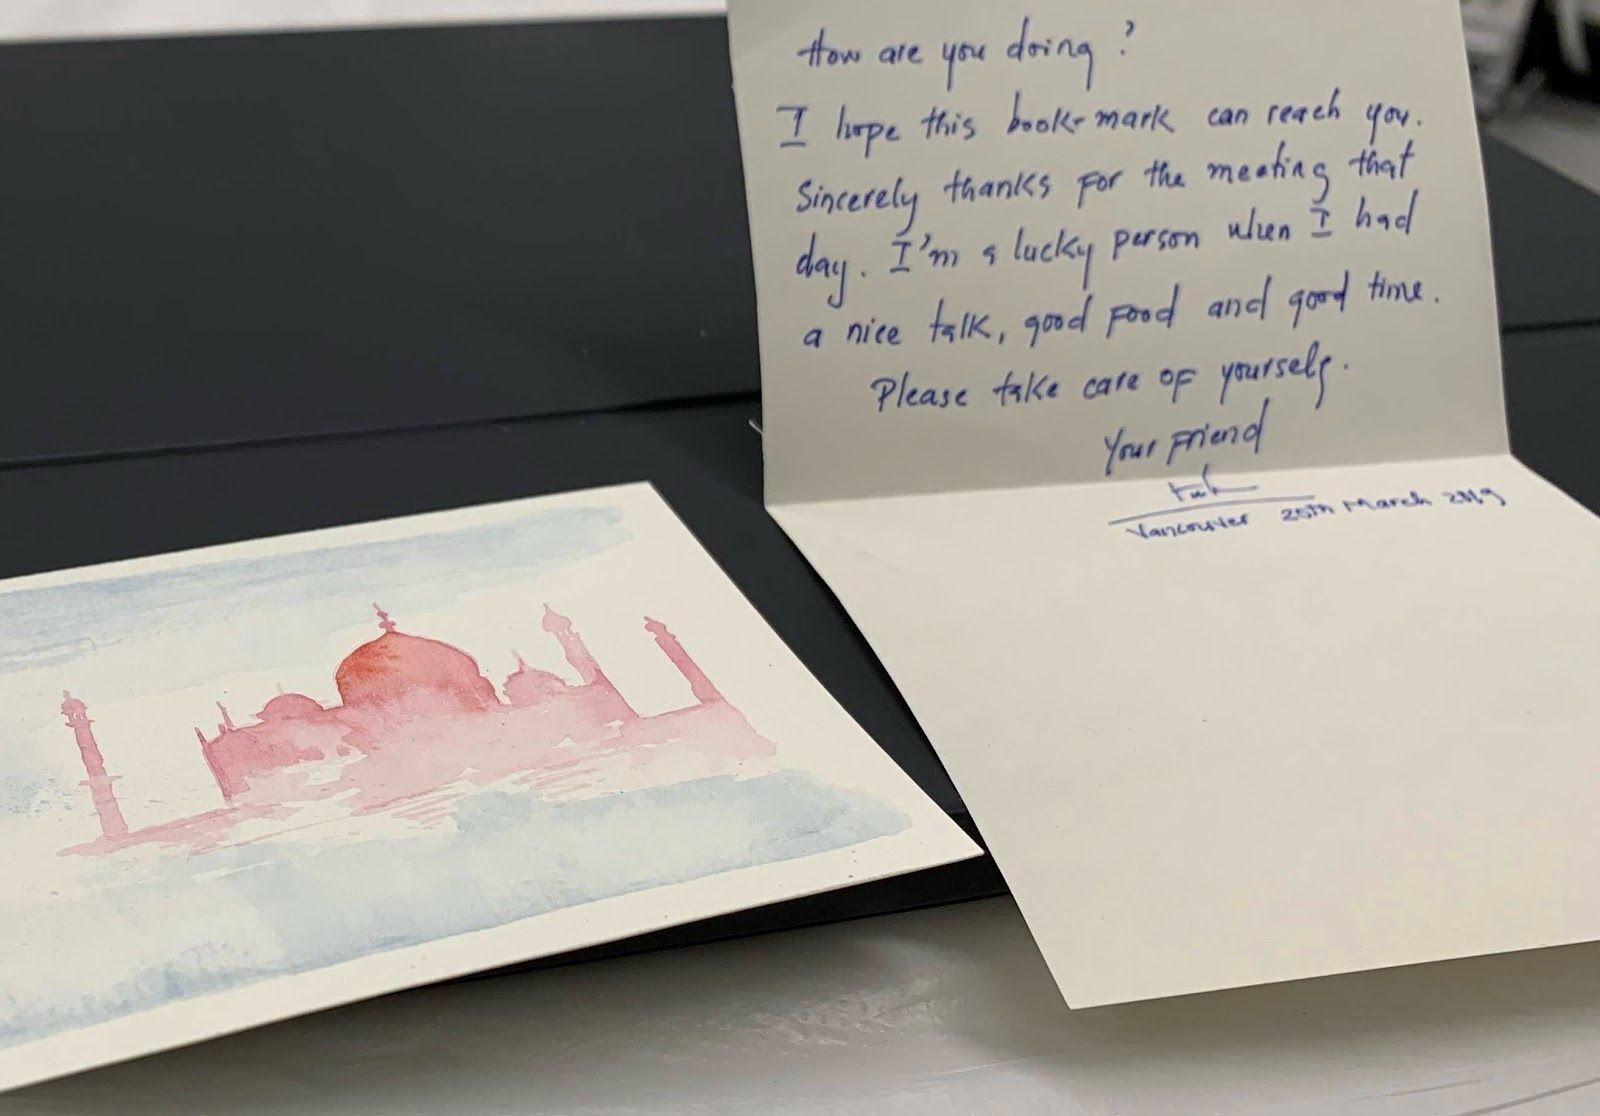 How are you doing?
I hope this book-mark can reach you.
Sincerely thanks for the meeting that
day. I'm a lucky person when I had
a nice talk, good food and good time.
Please take care of yourself.
Your Friend
Vancouver 25th March 2019